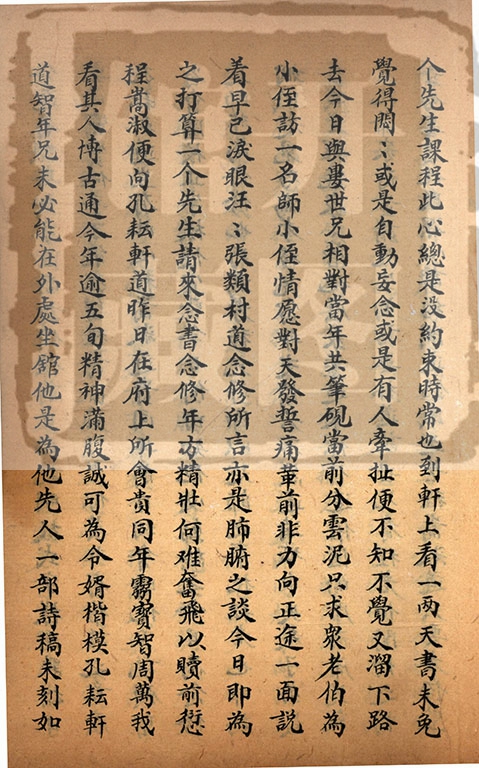 个先生課程此心總是没約束時常也到軒上看一两天書未免
覺得悶〻或是自動妄念或是有人牽扯便不知不覺又溜下路
去今日與婁世兄相對當年共筆硯當前分雲泥只求衆老伯為
小侄訪一名師小侄情愿對天發誓痛革前非力向正途一面說
着早已淚眼汪〻張類村道念修所言亦是肺腑之談今日即為
之打算一个先生請來念書念修年方精壯何难奮飛以贖前愆
程嵩淑便向孔耘軒道昨日在府上所會貴同年霱寳智周萬我
看其人博古通今年逾五旬精神滿腹誠可為令婿楷模孔耘軒
道智年兄未必能在外處坐舘他是為他先人一部詩稿未刻如